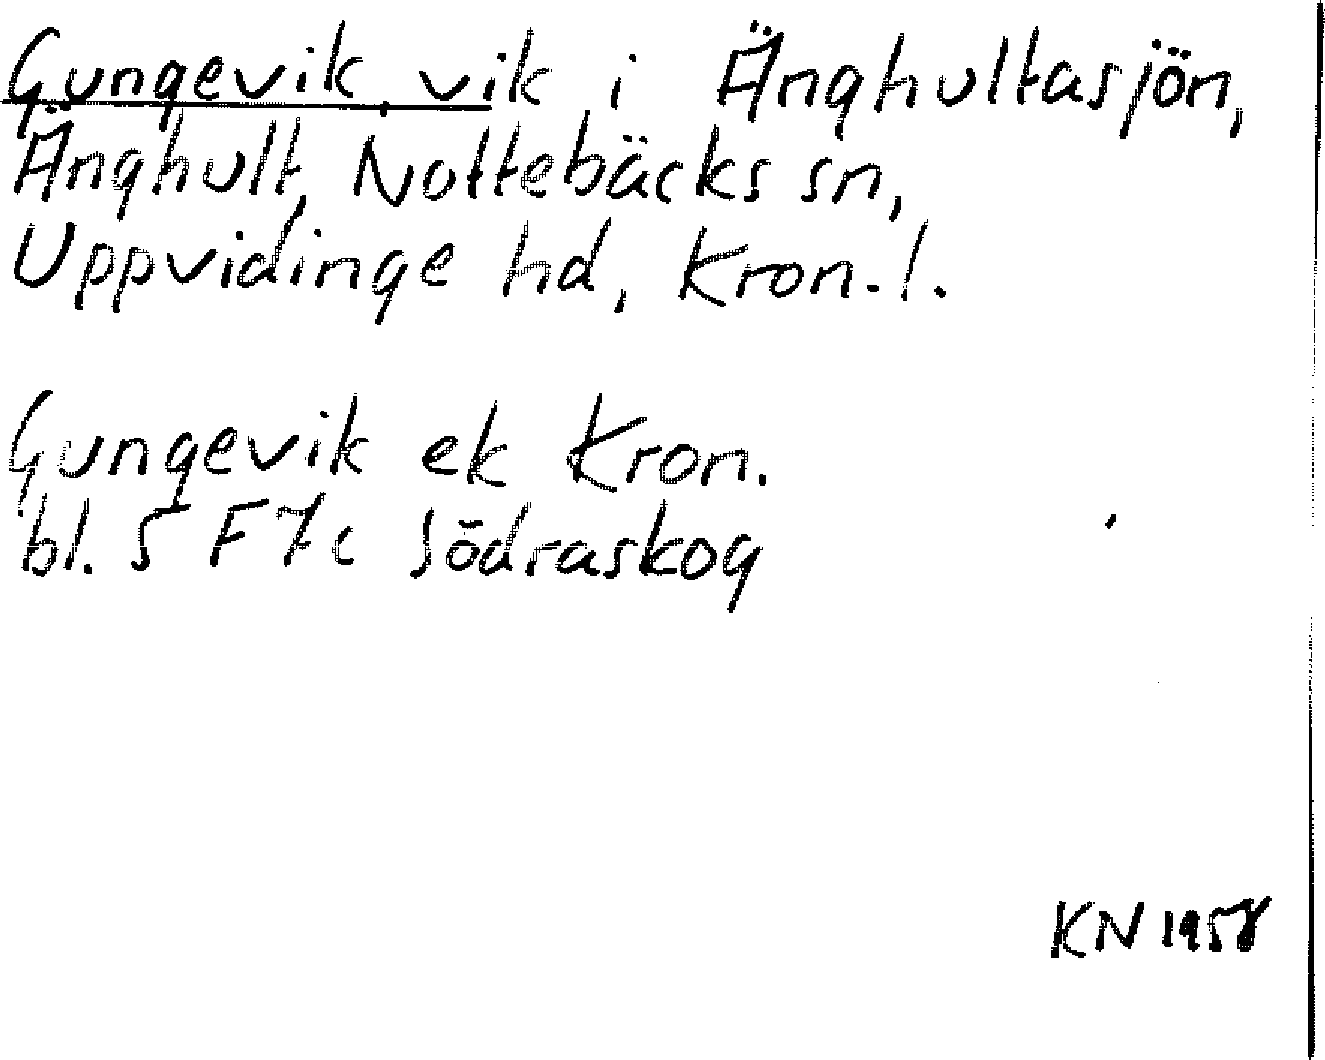 Gungevik, vik i Änghultasjön,
Änghult, Nottebäcks sn,
Uppvidinge hd, Kron.l.
Gungevik ek Kron.
bl. 5 F 7c Södraskog
KN 1958